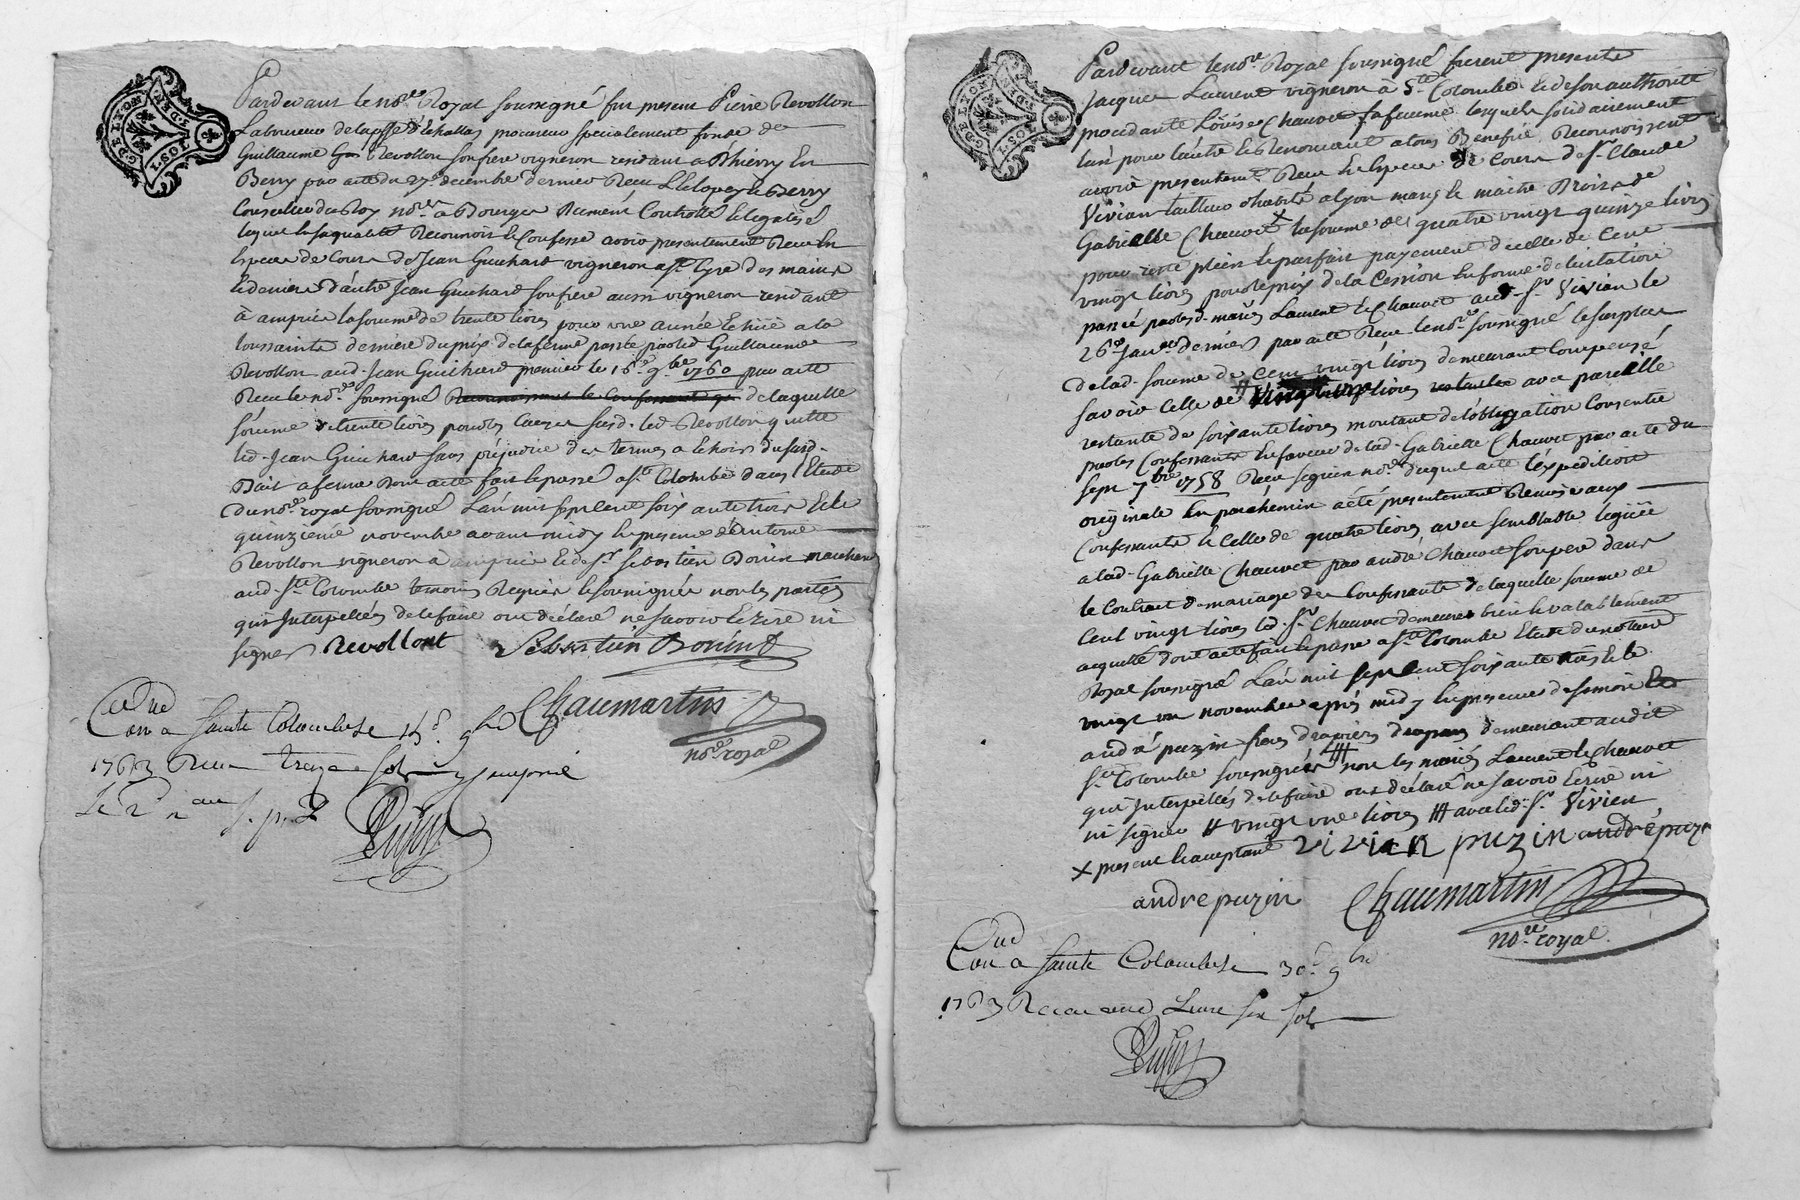 GDE LYON
1 SOL 4 DEN.
Pardevant le no.re Royal sousigné fut present Pierre Revollon
Laboureur de la p.sse d'échallas procureur specialement fondé de
Guillaume Revollon son frere vigneron residant a Thierry En
Berry par acte du 27.e decembre dernier Reçu
Conseiller du Roy no.re a Bourges Duement Controllé & legalisé
lequel sa qualité Reconnoit & Confesse avoir presentement Reçu En
Especes de Cours de Jean Guichard vigneron a S.t Cyre des mains
& deniers d'autre Jean Guichard son frere aussi vigneron residant
à ampuis la somme de trente livres pour une année Echüe a la
toussaints derniere du prix de la ferme passée par led Guillaume
Revollon aud. Jean Guichard premier le 16.e 9.bre 1760 par acte
Reçu le no.re sousigné Reconnoissant le Confessant de laquelle
somme de trente livres pour les causes susd. led Revollon quitte
led. Jean Guichard sans préjudice des termes a Echoir dususd.
Bail a ferme Dont acte fait & passé a S.te Colombe dans l'Etude
du no.re royal sousigné L'an mil sept cent soixante trois & le
quinzieme novembre avant midy En presence d'Antoine
Revollon vigneron a ampuis & de S.r Sebastien Bonin marchand
aud. S.te Colombe temoins Requis & sousignés non les parties
qui Interpellées de le faire ont déclaré ne savoir Ecrire ni
signer Revollont Sebastien Bonin
Chaumartin
no.re royal
Con a Sainte Colombe le 15.e 9bre
1763 Reçu treze sols
GDE LYON
1 SOL 4 DEN.
Pardevant le no.re Royal sousigné furent presents
Jacques Laurent vigneron à S.te Colombe & de son authorité
procedante Loüise Chauvet sa femme lesquels solidairement
l'un pour l'autre & Renonçant a tous Benefice Reconnoissent
avoir presentem.t Reçu En Especes de Cours de S.r Claude
Vivian tailleur d'habits a Lyon mary & maitre Droits de
Gabrielle Chauvet X la somme de quatre vingt quinze livres
pour reste plein & parfait payement de celle de Cent
vingt livres pour le prix de la Cession En forme de licitation
passée par les d. mariés Laurent & Chauvet aud. S.r Vivian le
26.e janv.er dernier par acte Reçu le no.re sousigné le surplus
de lad. somme de Cent vingt livres demeurant Compensé
savoir Celle de # vingt livres restante avec pareille
restante de soixante livres montant de l'obligation Consentie
par les Confessants En faveur de lad. Gabrielle Chauvet par acte du
sept 7.bre 1758 Reçu no.re duquel acte l'expedition
originale En parchemin a été presentement Remise aux
Confessants & celle de quatre livres avec semblable leguée
a lad. Gabrielle Chauvet par andré Chauvet son pere dans
le Contrat de mariage des Confessants de laquelle somme de
Cent vingt livres led. S.r Chauvet demeure bien & valablement
acquitté dont acte fait & passé a S.te Colombe Etude du notaire
Royal sousigné L'an mil sept cent soixante trois & le
vingt un novembre après midy En presence de Simon &
andré puzin freres drapiers drapans demeurant audit
S.te Colombe sousignés ### non les mariés Laurent & Chauvet
qui Interpellés de le faire ont déclaré ne savoir Ecrire ni
ni signer # vingt une livres ## avec led. S.r Vivien
X present & acceptant vivian puzin andré puzin
andre puzin Chaumartin
no.re royal
Con a Sainte Colombe le 30.e 9bre
1763 Recu une Livre six sols